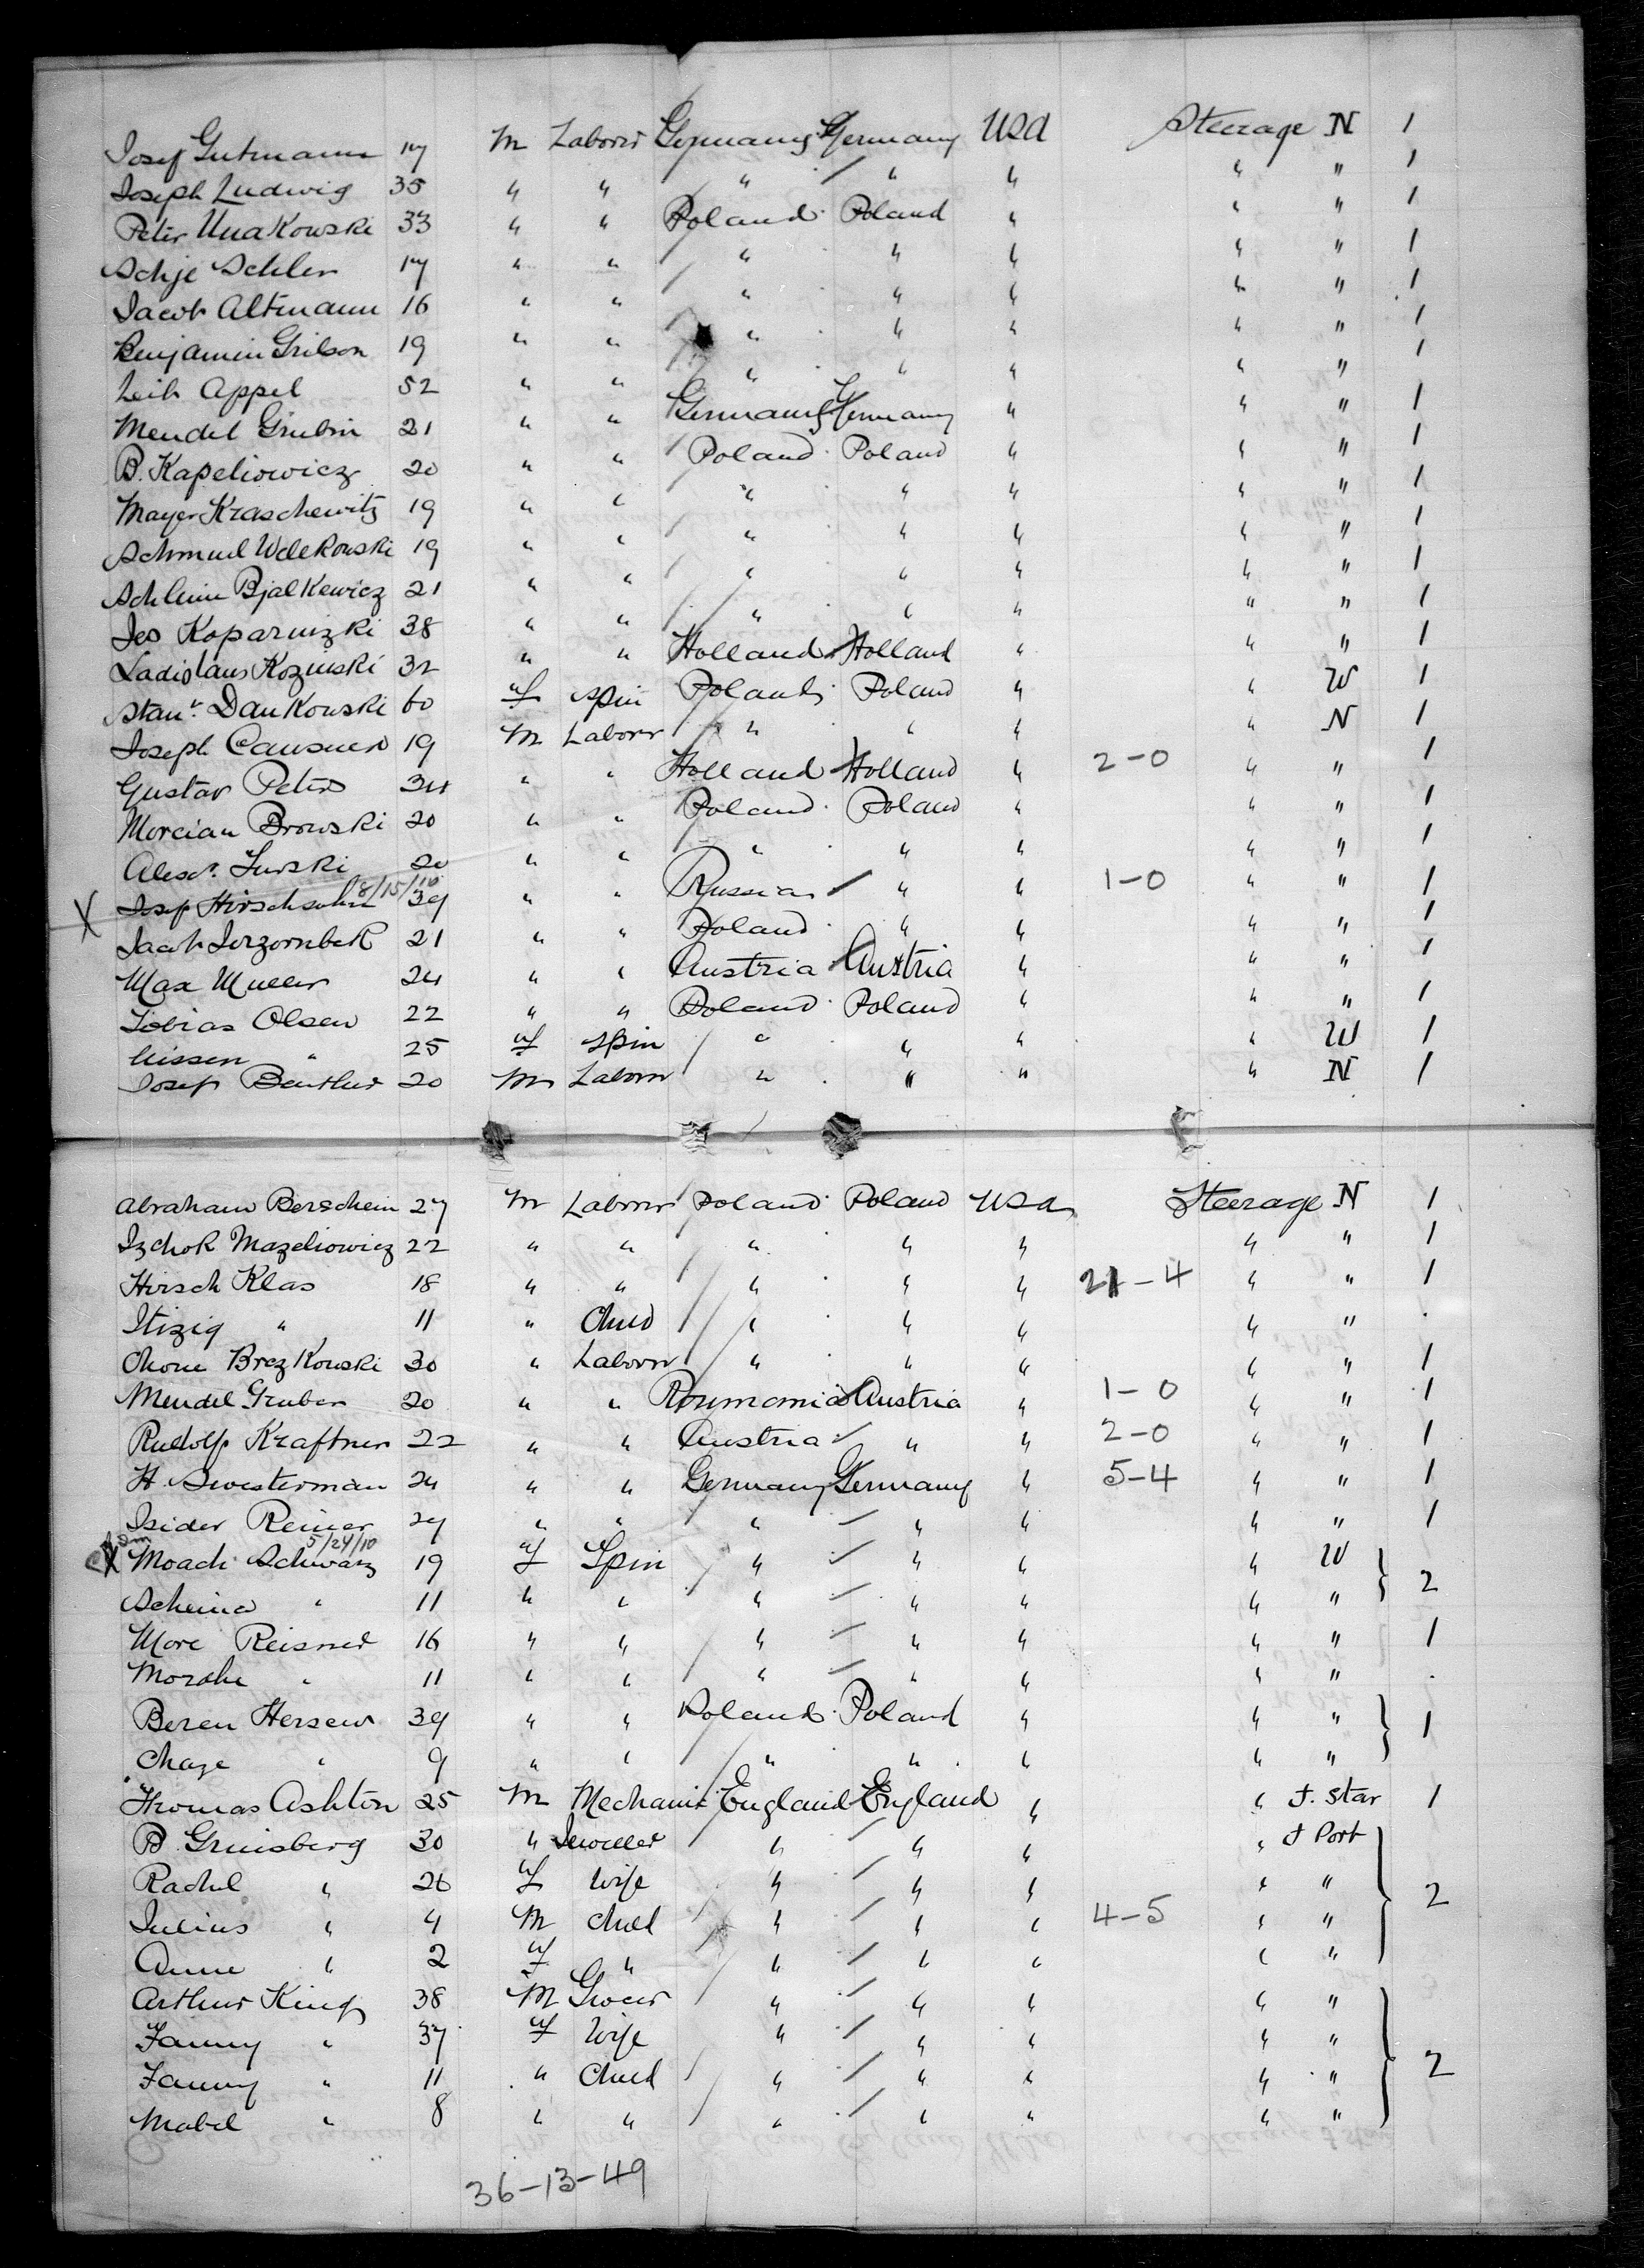 Josef Gutmann 17 M Laborer Germany Germany USA Steerage N 1
Joseph Ludwig 35 " " " " " " " 1
Peter UnaKowski 33 " " Poland Poland " " " 1
Schje Schler 17 " " " " " " " 1
Jacob Altmann 16 " " " " " " " 1
Benjamin Grilson 19 " " " " " " " 1
Leib Appel 52 " " " " " " " 1
Mendel Grubin 21 " " Germany Germany " " " 1
B. Kapeliowicz 20 " " Poland Poland " " " 1
Mayer Kraschewitz 19 " " " " " " " 1
Schmuel WdeKowski 19 " " " " " " " 1
Schleim BjalKewicz 21 " " " " " " " 1
Jes Koparnizki 38 " " " " " " " 1
Ladislaus Kozinski 32 " " Holland Holland " " " 1
Stanr. DanKowski 60 f Spin Poland Poland " " W 1
Joseph Causner 19 M Laborer " " " " N 1
Gustav Peters 34 " " Holland Holland " 2-0 " " 1
Morcian Browski 20 " " Poland Poland " " " 1
Alexr. Jurski 20 " " " " " " " 1
X Josef Hirschsohn 8/15/10 39 " " Russia " " 1-0 " " 1
Jacob JerzornbeK 21 " " Poland " " " " 1
Max Muller 24 " " Austria Austria " " " 1
Tobias Olsen 22 " " Poland Poland " " " 1
Nissen " 25 f Spin " " " " W 1
Josef Benther 20 M Laborer " " " " N 1
Abraham Berschein 27 M Laborer Poland Poland USA Steerage N 1
IzchoK Mazeliowicz 22 " " " " " " " 1
Hirsch Klas 18 " " " " " 21-4 " " 1
Itizig " 11 " Child " " " " "
Chone BrezKowski 30 " Laborer " " " " " 1
Mendel Gruber 20 " " Roumania Austria " 1-0 " " 1
Rudolf Kraftner 22 " " Austria " " 2-0 " " 1
H. Swesterman 24 " " Germany Germany " 5-4 " " 1
Isider Reiner 27 " " " " " " " 1
X Moach Schwarz 5/24/10 19 f Spin " " " " W } 2
Scheind " 11 " " " " " " "
More Reisner 16 " " " " " " " 1
Mordhe " 11 " " " " " " "
Beren Hersew 39 " " Poland Poland " " " } 1
Chaje " 9 " " " " " " "
Thomas Ashton 25 M Mechanic England England " " J. Star 1
B. Grinsberg 30 " Jeweller " " " " J Port } 2
Rachel " 26 f Wife " " " " "
Julius " 4 M Child " " " 4-5 " "
Anne " 2 f " " " " " "
Arthur King 38 M Grocer " " " " " } 2
Fanny " 37 f Wife " " " " "
Fanny " 11 " Child " " " " "
Mabel " 8 " " " " " " "
36-13-49